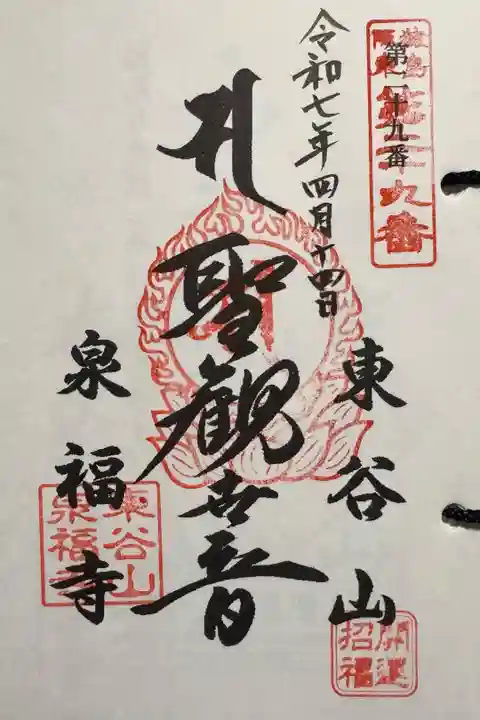 第二十九番
令和七年四月十四日
東谷山
聖観世音
泉福寺
東谷山
泉福寺
開運
招福